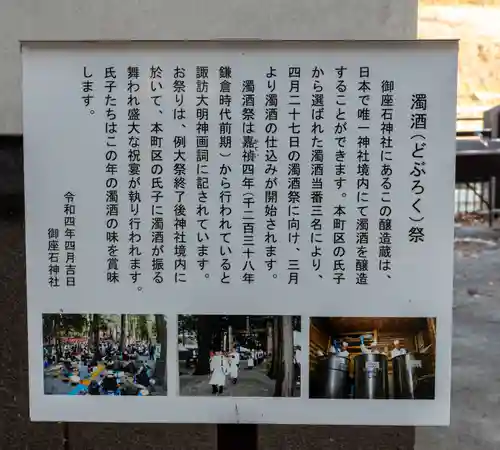 濁酒(どぶろく)祭
御座石神社にあるこの醸造蔵は、
日本で唯一神社境内にて濁酒を醸造
することができます。本町区の氏子
から選ばれた濁酒当番三名により、
四月二十七日の濁酒祭に向け、三月
より濁酒の仕込みが開始されます。
濁酒祭は嘉禎四年(千二百三十八年
鎌倉時代前期)から行われていると
諏訪大明神画詞に記されています。
お祭りは、例大祭終了後神社境内に
於いて、本町区の氏子に濁酒が振る
舞われ盛大な祝宴が執り行われます。
氏子たちはこの年の濁酒の味を賞味
します。
令和四年四月吉日
御座石神社